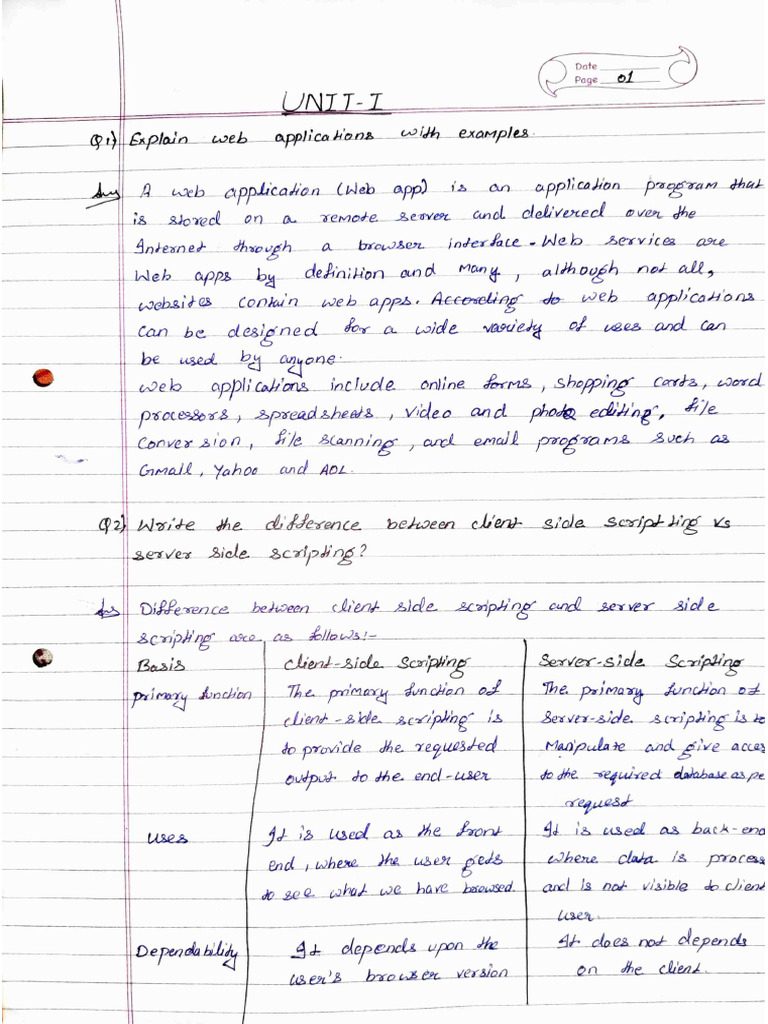 Date
Page 01
UNIT-I
Q1) Explain web applications with examples.
Ans A web application (Web app) is an application program that
is stored on a remote server and delivered over the
Internet through a browser interface. Web services are
Web apps by definition and many, although not all,
websites contain web apps. According to web applications
can be designed for a wide variety of uses and can
be used by anyone.
Web applications include online forms, shopping carts, word
processors, spreadsheets, video and photo editing, file
conversion, file scanning, and email programs such as
Gmail, Yahoo and AOL.
Q2) Write the difference between client side scriptting vs
server side scripting?
Ans Difference between client side scripting and server side
scripting are as follows:-
Basis Client-side Scripting Server-side Scripting
primary function The primary function of The primary function of
client-side scripting is Server-side scripting is to
to provide the requested Manipulate and give acces
output to the end-user to the required database as pe
request
Uses It is used as the front It is used as back-en
end, where the user gets where data is process
to see what we have browsed. and is not visible to client
user.
Dependability It depends upon the It does not depends
user's browser version on the client.